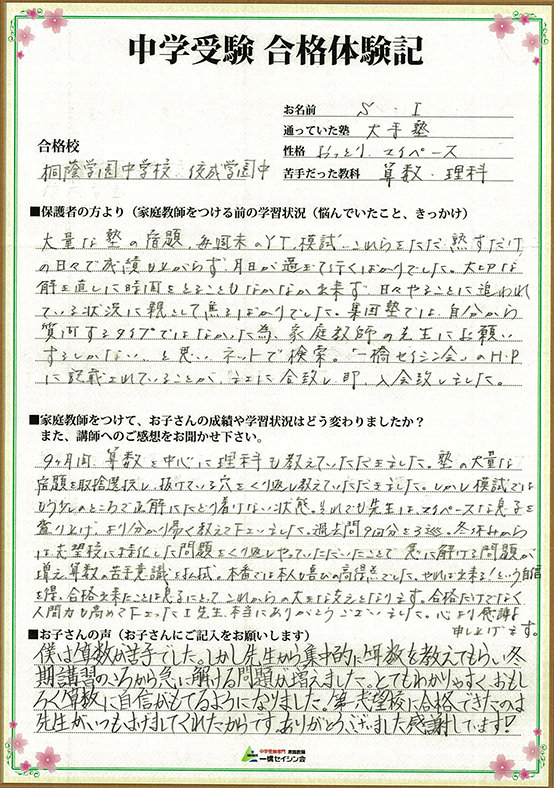 中学受験 合格体験記
お名前 S．I
通っていた塾 大手塾
合格校
性格 おっとり、マイペース
桐蔭学園中学校、佼成学園中
苦手だった教科 算数・理科
■保護者の方より（家庭教師をつける前の学習状況（悩んでいたこと、きっかけ）
大量な塾の宿題、毎週末のYT、模試…これらをただ、熟すだけ
の日々で成績も上がらず、月日が過ぎて行くばかりでした。大切な
解き直しに時間をとることもなかなか出来ず、日々やることに追われ
ている状況に親として焦るばかりでした。集団塾では、自分から
質問するタイプではなかった為、家庭教師の先生にお願い
するしかない、と思い、ネットで検索。「一橋セイシン会」のH・P
に記載されていることが、主に合致し、即、入会致しました。
■家庭教師をつけて、お子さんの成績や学習状況はどう変わりましたか？
また、講師へのご感想をお聞かせ下さい。
9ヶ月間、算数を中心に理科も教えていただきました。塾の大量な
宿題を取捨選択し、抜けている穴をくり返し教えていただきました。しかし模試では
もう少しのところで正解にたどり着けない状態。それでも先生は、マイペースな息子を
盛り上げ、より分かり易く教えて下さいました。過去問9回分を3巡。冬休みから
は志望校に特化した問題をくり返しやっていただいたことで、急に解ける問題が
増え、算数の苦手意識を払拭。本番では本人も喜びの高得点でした。やれば出来る！という自信
を得、合格出来たことは息子にとってこれからの大きな支えとなります。合格だけでなく
人間力も高めて下さったI先生、本当にありがとうございました。心より感謝
申し上げます。
■お子さんの声（お子さんにご記入をお願いします）
僕は算数が苦手でした。しかし先生から集中的に算数を教えてもらい、冬
期講習のころから急に解ける問題が増えました。とてもわかりやすく、おもし
ろく算数に自信がもてるようになりました。第一志望校に合格できたのは
先生がいつもはげましてくれたからです。ありがとうございました。感謝しています！
中学受験専門 家庭教師
一橋セイシン会